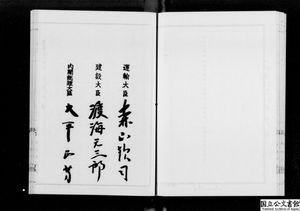 運輸大臣 森山欽司
建設大臣 渡海元三郎
内閣総理大臣 大平正芳
国立公文書館
National Archives of Japan